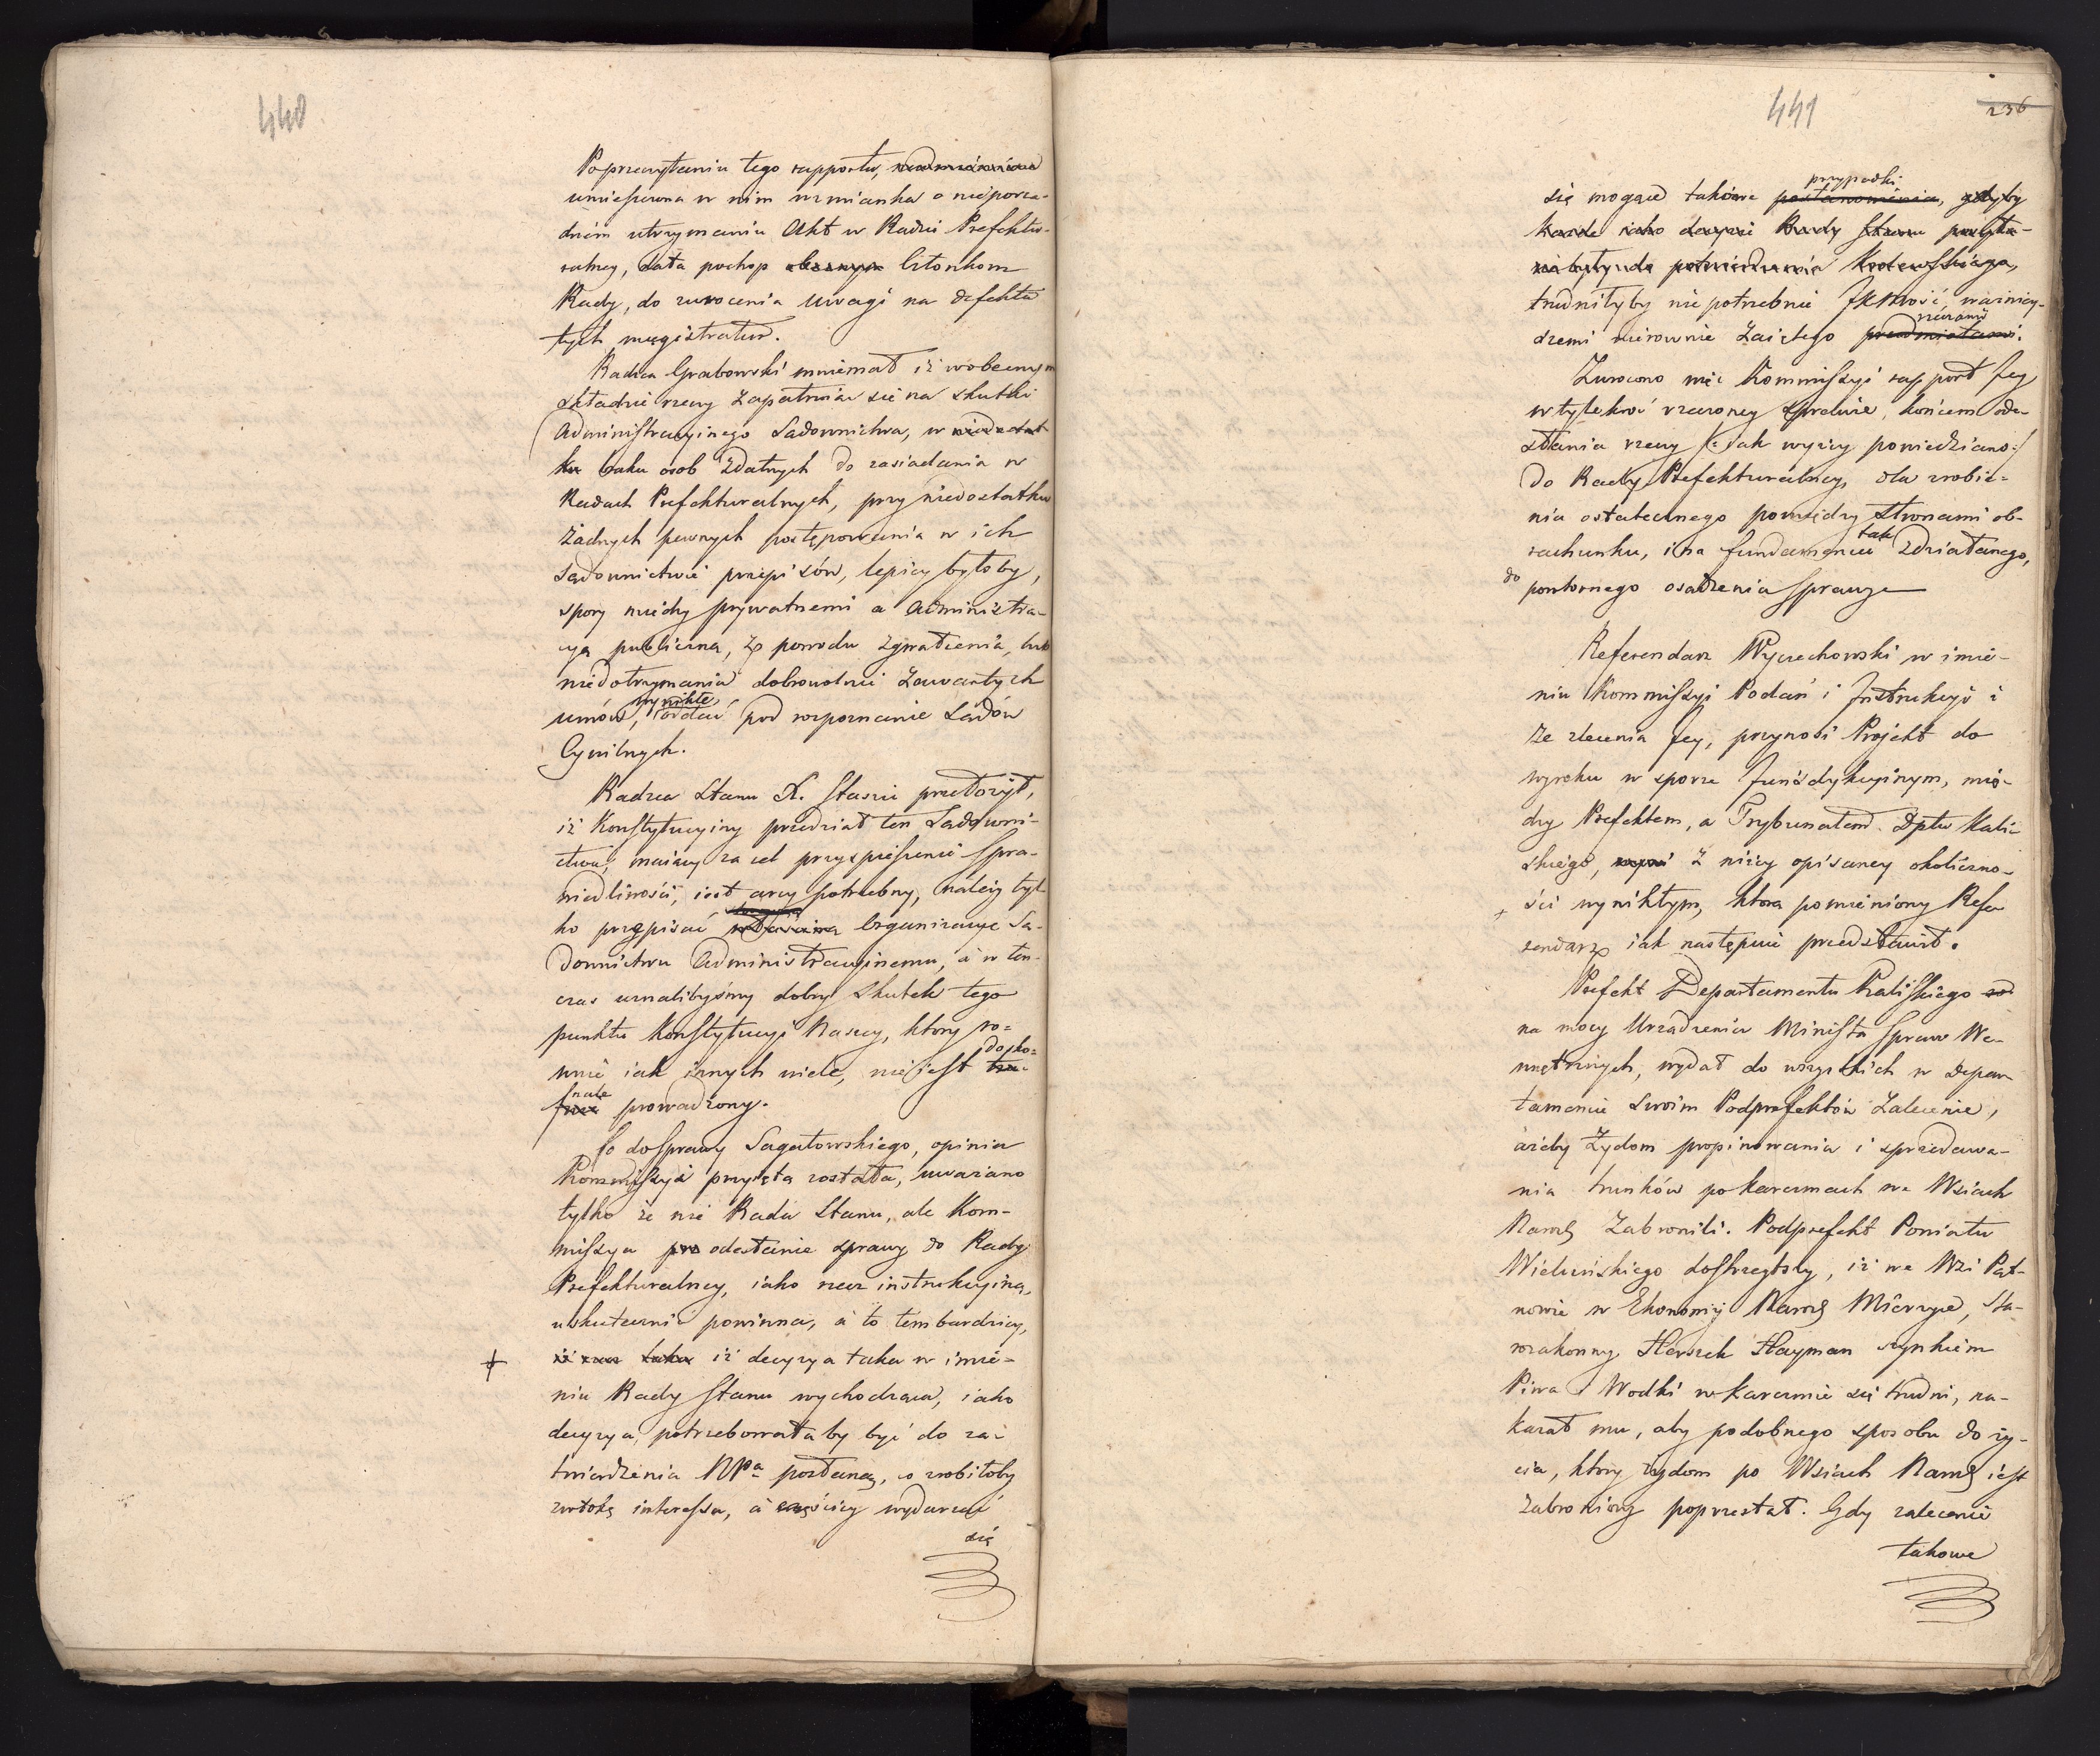 440
Po przeczytaniu tego rapportu,
umieszczona w nim wzmianka o nieporzą-
dném utrzymaniu Akt w Radzie Prefektu-
ralney, data pochop obecnym Członkom
Rady, do zwrocenia uwagi na defekta
tych magistratur.
Radca Grabowski mniemał iż w obecnym
składzie rzeczy zapatruiąc się na skutki
Administracyinego Sądownictwa, w niedostat-
ku braku osob zdatnych do zasiadania w
Radach Prefekturalnych, przy niedostatku
żadnych pewnych postępowania w ich
sądownictwie przepisów, lepiey byłoby,
spory między prywatnemi a Administra-
cyą publiczną, z powodu zgwałcenia, lub
niedotrzymania dobrowolnie zawartych
umów, wynikłe, oddać pod rozpoznanie Sądów
Cywilnych.
Radca Stanu X. Staszic przełożył,
iż Konstytucyiny przedział ten Sądowni-
ctwa, maiący za cel przyspieszenie spra-
wiedliwości, iest arcy potrzebny, należy tyl-
ko przepisać właściwą Organizacye Są-
downictwu Administracyinemu, a w ten-
czas uznalibyśmy dobry skutek tego
punktu Konstytucyi Naszey, ktory ro-
wnie iak innych wiele, nie iest dosko-
nale prowadzony.
Co do sprawy Sagatowskiego, opinia
Kommissyi przyięta została, uważano
tylko że nie Rada Stanu, ale Kom-
missya pro odesłanie sprawy do Rady
Prefekturalney, iako rzecz instrukcyiną,
uskutecznić powinna, a to tem bardziey,
+ iż decyzya taka w imie-
niu Rady Stanu wychodząca, iako
decyzya, potrzebowała by być do za-
twierdzenia NPa posłaną, co zrobiłoby
zwłokę interessu, a częściey wydarzać
się
441
236
przypadki
się mogące takowe postanowienia, gdyby
każde iako decyzie Rady Stanu posyła-
ne były do potwierdzenia Krolewskiego,
trudniłyby niepotrzebnie JKMość, ważniey-
rzeczami
szemi nierownie zaiętego przedmiotami.
Zwrocono więc Kommissyi rapport Jey
w tylekroć rzeczoney sprawie, końcem ode-
słania rzeczy /: iak wyżey powiedziano :/
do Rady Prefekturalney, dla zrobie-
nia ostatecznego pomiędzy Stronami ob-
tak
rachunku, i na fundamencie zdziałanego,
do powtornego osądzenia sprawy
Referendarz Wyczechowski w imie-
niu Kommissyi Podań i Instrukcyi i
ze zlecenia Jey, przynosi Projekt do
wyroku w sporze Jurisdykcyinym, mię-
dzy Prefektem, a Trybunałem Dptu Kali-
skiego, z niżey opisaney okoliczno-
+ ści wynikłym, ktora pomieniony Refe-
rendarz iak następuie przedstawił.
Prefekt Departamentu Kaliskiego
na mocy Urządzenia Ministra Spraw We-
wnętrznych, wydał do wszystkich w Depar-
tamencie swoim Podprefektów zalecenie,
ażeby Żydom propinowania i sprzedawa-
nia trunków po karczmach we Wsiach
Narod: zabronili. Podprefekt Powiatu
Wieluńskiego dostrzegłszy, iż we Wsi Pąt-
nowie w Ekonomij Narod: Mierzyce, Sta-
rozakonny Herszek Hayman szynkiem
Piwa i Wodki w karczmie się trudni, na-
kazał mu, aby podobnego sposobu do ży-
cia, ktory żydom po Wsiach Narod: iest
zabroniony poprzestał. Gdy zalecenie
takowe